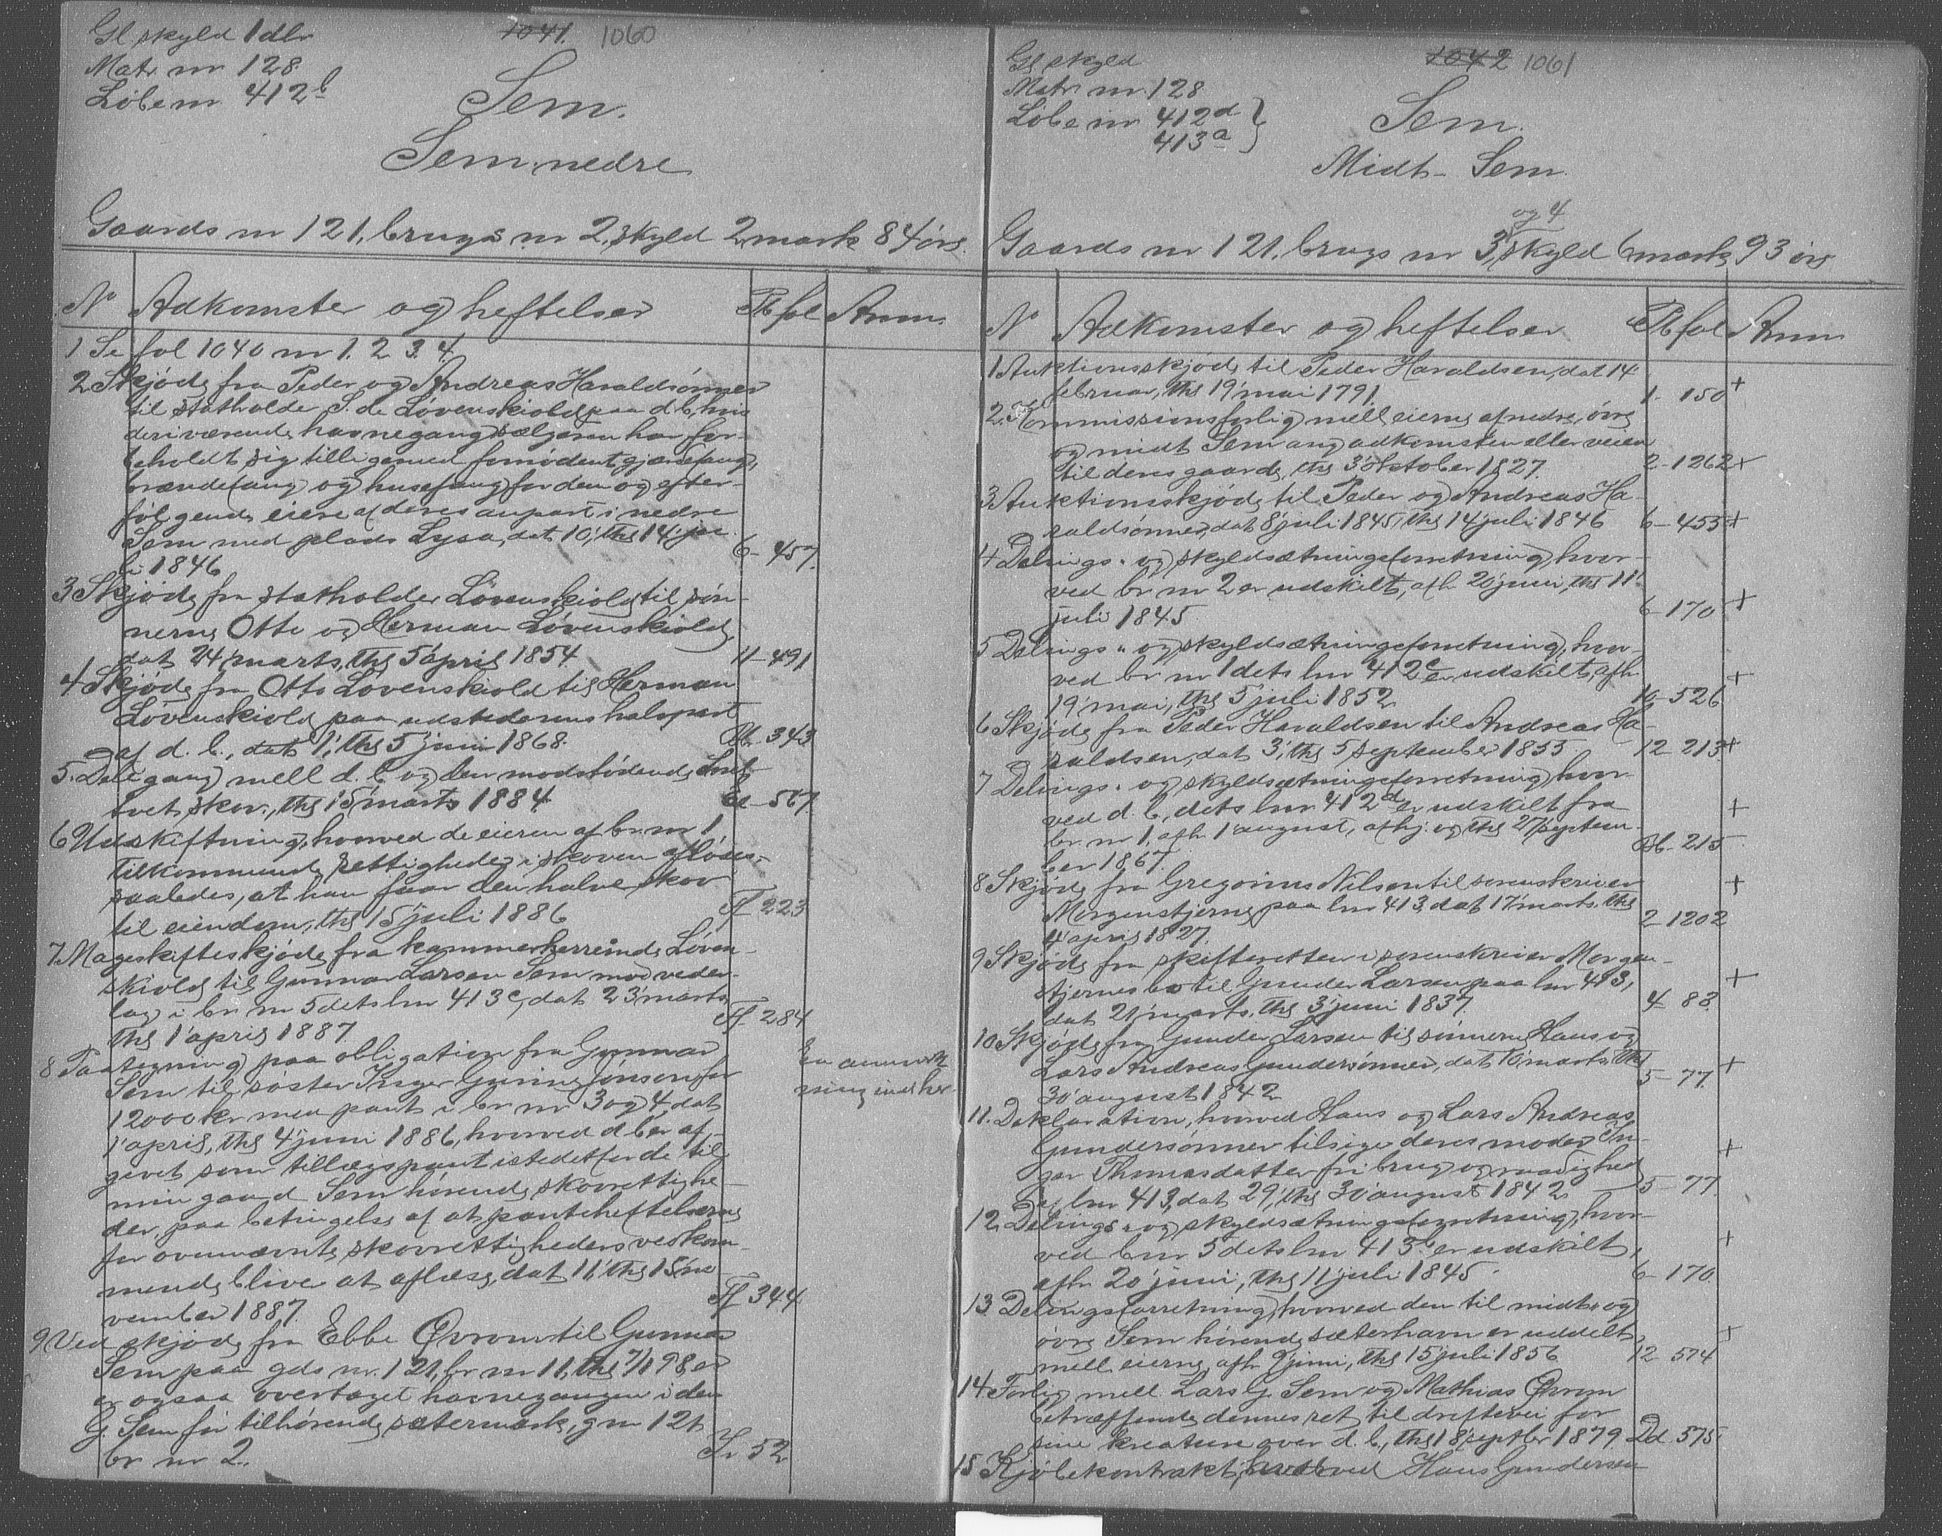 Gl skyld 1 dlr
1041. 1060
Matr nr 128
Løbe nr 412b
Sem.
Sem nedre
Gaards nr 121, brugs nr 2, skyld 2 mark 84 øre.
N Adkomster og heftelser Pb fol Anm.
1 Se fol 1040 nr 1. 2. 3. 4.
2 Skjøde fra Peder og Andreas Haraldsønner
til statholder S. de Løvenskiold paa d. b., hvis
deriværende havnegang sælgeren har for-
beholdt sig tilligemed fornødent gjærdefang,
brændefang og husefang for dem og efter-
følgende eiere af deres anpart i nedre
Sem med plads Lysa, dat 10, thg 14 ju-
li 1846 6- 457.
3 Skjøde fra statholder Løvenskiold til søn-
nerne Otto og Herman Løvenskiold,
dat 24 marts, thg 5 april 1854 11- 491
4 Skjøde fra Otto Løvenskiold til Herman
Løvenskiold paa udstederens halvpart
af d. b., dat 1, thg 5 juni 1868. 343
5. Delegang mell d. b. og den modstødende
skov, thg 15 marts 1884. 567.
6 Udskiftning, hvorved de eieren af br nr 1,
tilkommende rettigheder i skoven afløses
saaledes, at han faar den halve skov
til eiendom, thg 15 juli 1886 Ff 223
7. Mageskifteskjøde fra kammerherreinde Løven-
skiold til Gunnar Larsen Sem mod veder-
lag i br nr 5 dets lnr 413c, dat 23 marts,
thg 1 april 1887. Ff 284
8 Paategning paa obligation fra Gunnar
Sem til søster Inger Gurine Jønsen for
12000 kr med pant i br nr 3 og 4 dat
1 april, thg 4 juni 1886, hvorved d b er af-
givet som tillægspant istedetfor de til
min gaard Sem hørende skovrettighe-
der, paa betingelse af at pantehæftelserne
for ovennævnte skovrettigheders vedkom-
mende blive at aflæse, dat 11, thg 15 no
vember 1887. Ff 344
En anmærk
ning inds her
9 Ved skjøde fra Ebbe Øvrom til Gunnar
Sem paa gds nr. 121, br nr 11, thg 7/1 98, er
er ogsaa overtaget havnegangen i den
G. Sem før tilhørende sætermark, g nr 121
br nr 2. 52
Gl skyld
1042 1061
Matr nr 128
Løbe nr 412d
413a
Sem.
Midt- Sem.
og 4
Gaards nr 121. brugs nr 3, skyld 6 mark 93 øre
N Adkomster og heftelser Pb fol Anm
1 Auktionsskjøde til Peder Haraldsen, dat 14
februar, thg 19 mai 1791. 1- 150 +
2. Kommissionsforlig mell eierne af nedre, øvre
og midt Sem ang adkomsten eller veien
til deres gaarde, thg 3 oktober 1827. 2- 1262 +
3 Auktionsskjøde til Peder og Andreas Ha-
raldsønner, dat 8 juli 1845, thg 14 juli 1846 6- 455 +
4 Delings- og skyldsætningsforretning, hvor-
ved br nr 2 er udskilt, afh 20 juni, thg 11
juli 1845 6- 170 +
5 Delings- og skyldsætningsforretning, hvor-
ved br nr 1 dets lnr 412c er udskilt, afh
19 mai, thg 5 juli 1852. 10- 526 +
6 Skjøde fra Peder Haraldsen til Andreas Ha-
raldsen, dat 3, thg 5 september 1853 12 213 +
7 Delings- og skyldsætningsforretning, hvor-
ved d. b., dets lnr 412d er udskilt fra
br nr 1, afh 1 august, afhj. og thg 27 septem-
ber 1867. 215 +
8 Skjøde fra Gregorius Nilsen til sorenskriver
Morgenstjerne paa lnr 413, dat 17 marts, thg
4 april 1827. 2 1202 +
9 Skjøde fra skifteretten i sorenskriver Morgen-
stjernes bo til Gunder Larsen paa lnr 413,
dat 21 marts, thg 3 juni 1837. 4- 83 +
10 Skjøde fra Gunder Larsen til sønnerne Hans og
Lars Andreas Gundersønner, dat 16 marts, thg
30 august 1842 5- 77. +
11. Deklaration, hvorved Hans og Lars Andreas
Gundersønner tilsiger deres moder In-
ger Thomasdatter fri brug og raadighed
over lnr 413, dat 29, thg 30 august 1842 5- 77 +
12. Delings- og skyldsætningsforretning, hvor-
ved br nr 5 dets lnr 413b er udskilt,
afh 20 juni, thg 11 juli 1845. 6- 170 +
13 Delingsforretning, hvorved den til midt- og
øvre Sem hørende sæterhavn er uddelt,
mell eierne, afh 9 juni, thg 15 juli 1856 12 574 +
14 Forlig mell Lars G. Sem og Mathias Øvrom
betræffende dennes ret til driftevei for
sine kreature over d. b., thg 18 septbr 1879 Dd. 575
15 Kjøbekontrakt, hvorved Hans Gundersen